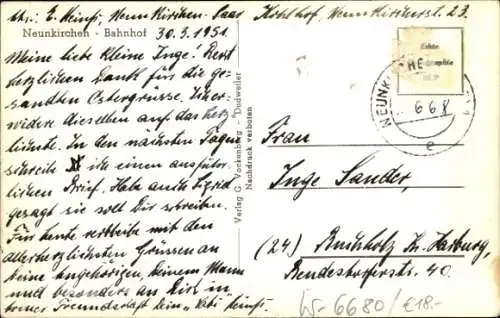 Abs. E. Heinß, Neunkirchen-Saar Kohlhof, Neunkircherstr. 23.
Neunkirchen - Bahnhof 30.3.1951
Meine liebe kleine Inge! Recht
herzlichen Dank für die ge-
sandten Ostergrüsse. Über-
wieder dieselben auf das herz-
lichste. In den nächsten Tagen
schreibe ich einen ausführ-
lichen Brief. Habe auch Sigrid
gesagt sie soll Dir schreiben.
Für heute verbleibe mit den
allerherzlichsten Grüssen an
Deine Angehörigen, Deinem Mann
und besonders an Dich in
treuer Freundschaft Dein
Verlag G. Vockenberg - Dudweiler
Nachdruck verboten
Echte
Photographie
NEUNK
6.6 8
e
Frau
Inge Sander
(24) Buchholz Kr. Harburg,
Bendestorferstr. 40.
W-6680/€18.-